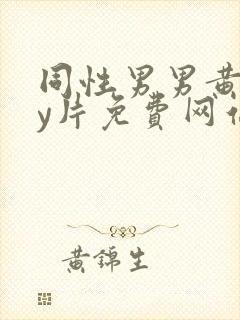 同性男男黄
y片免费网
黄锦生